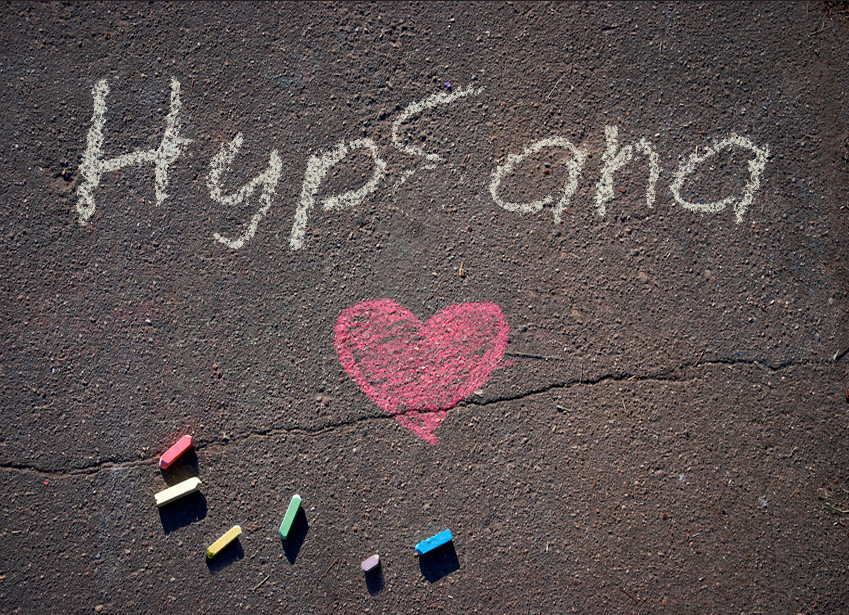 Hyps ana